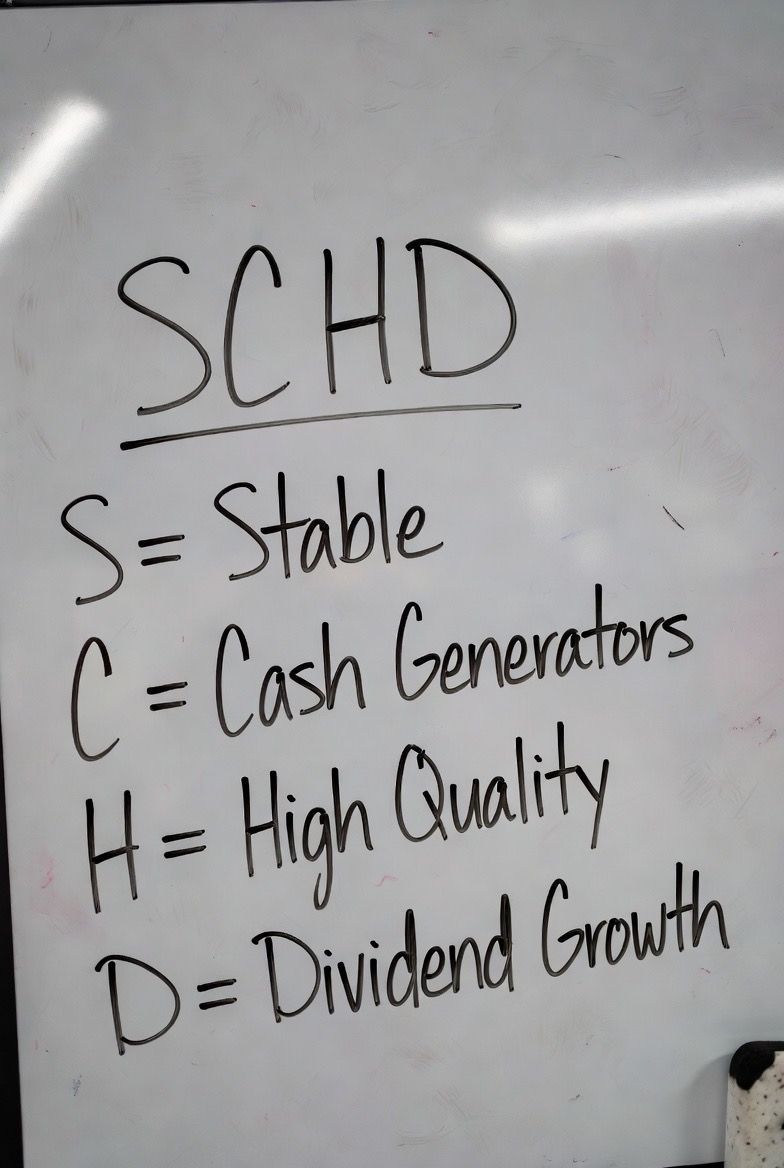 SCHD
S = Stable
C = Cash Generators
H = High Quality
D = Dividend Growth